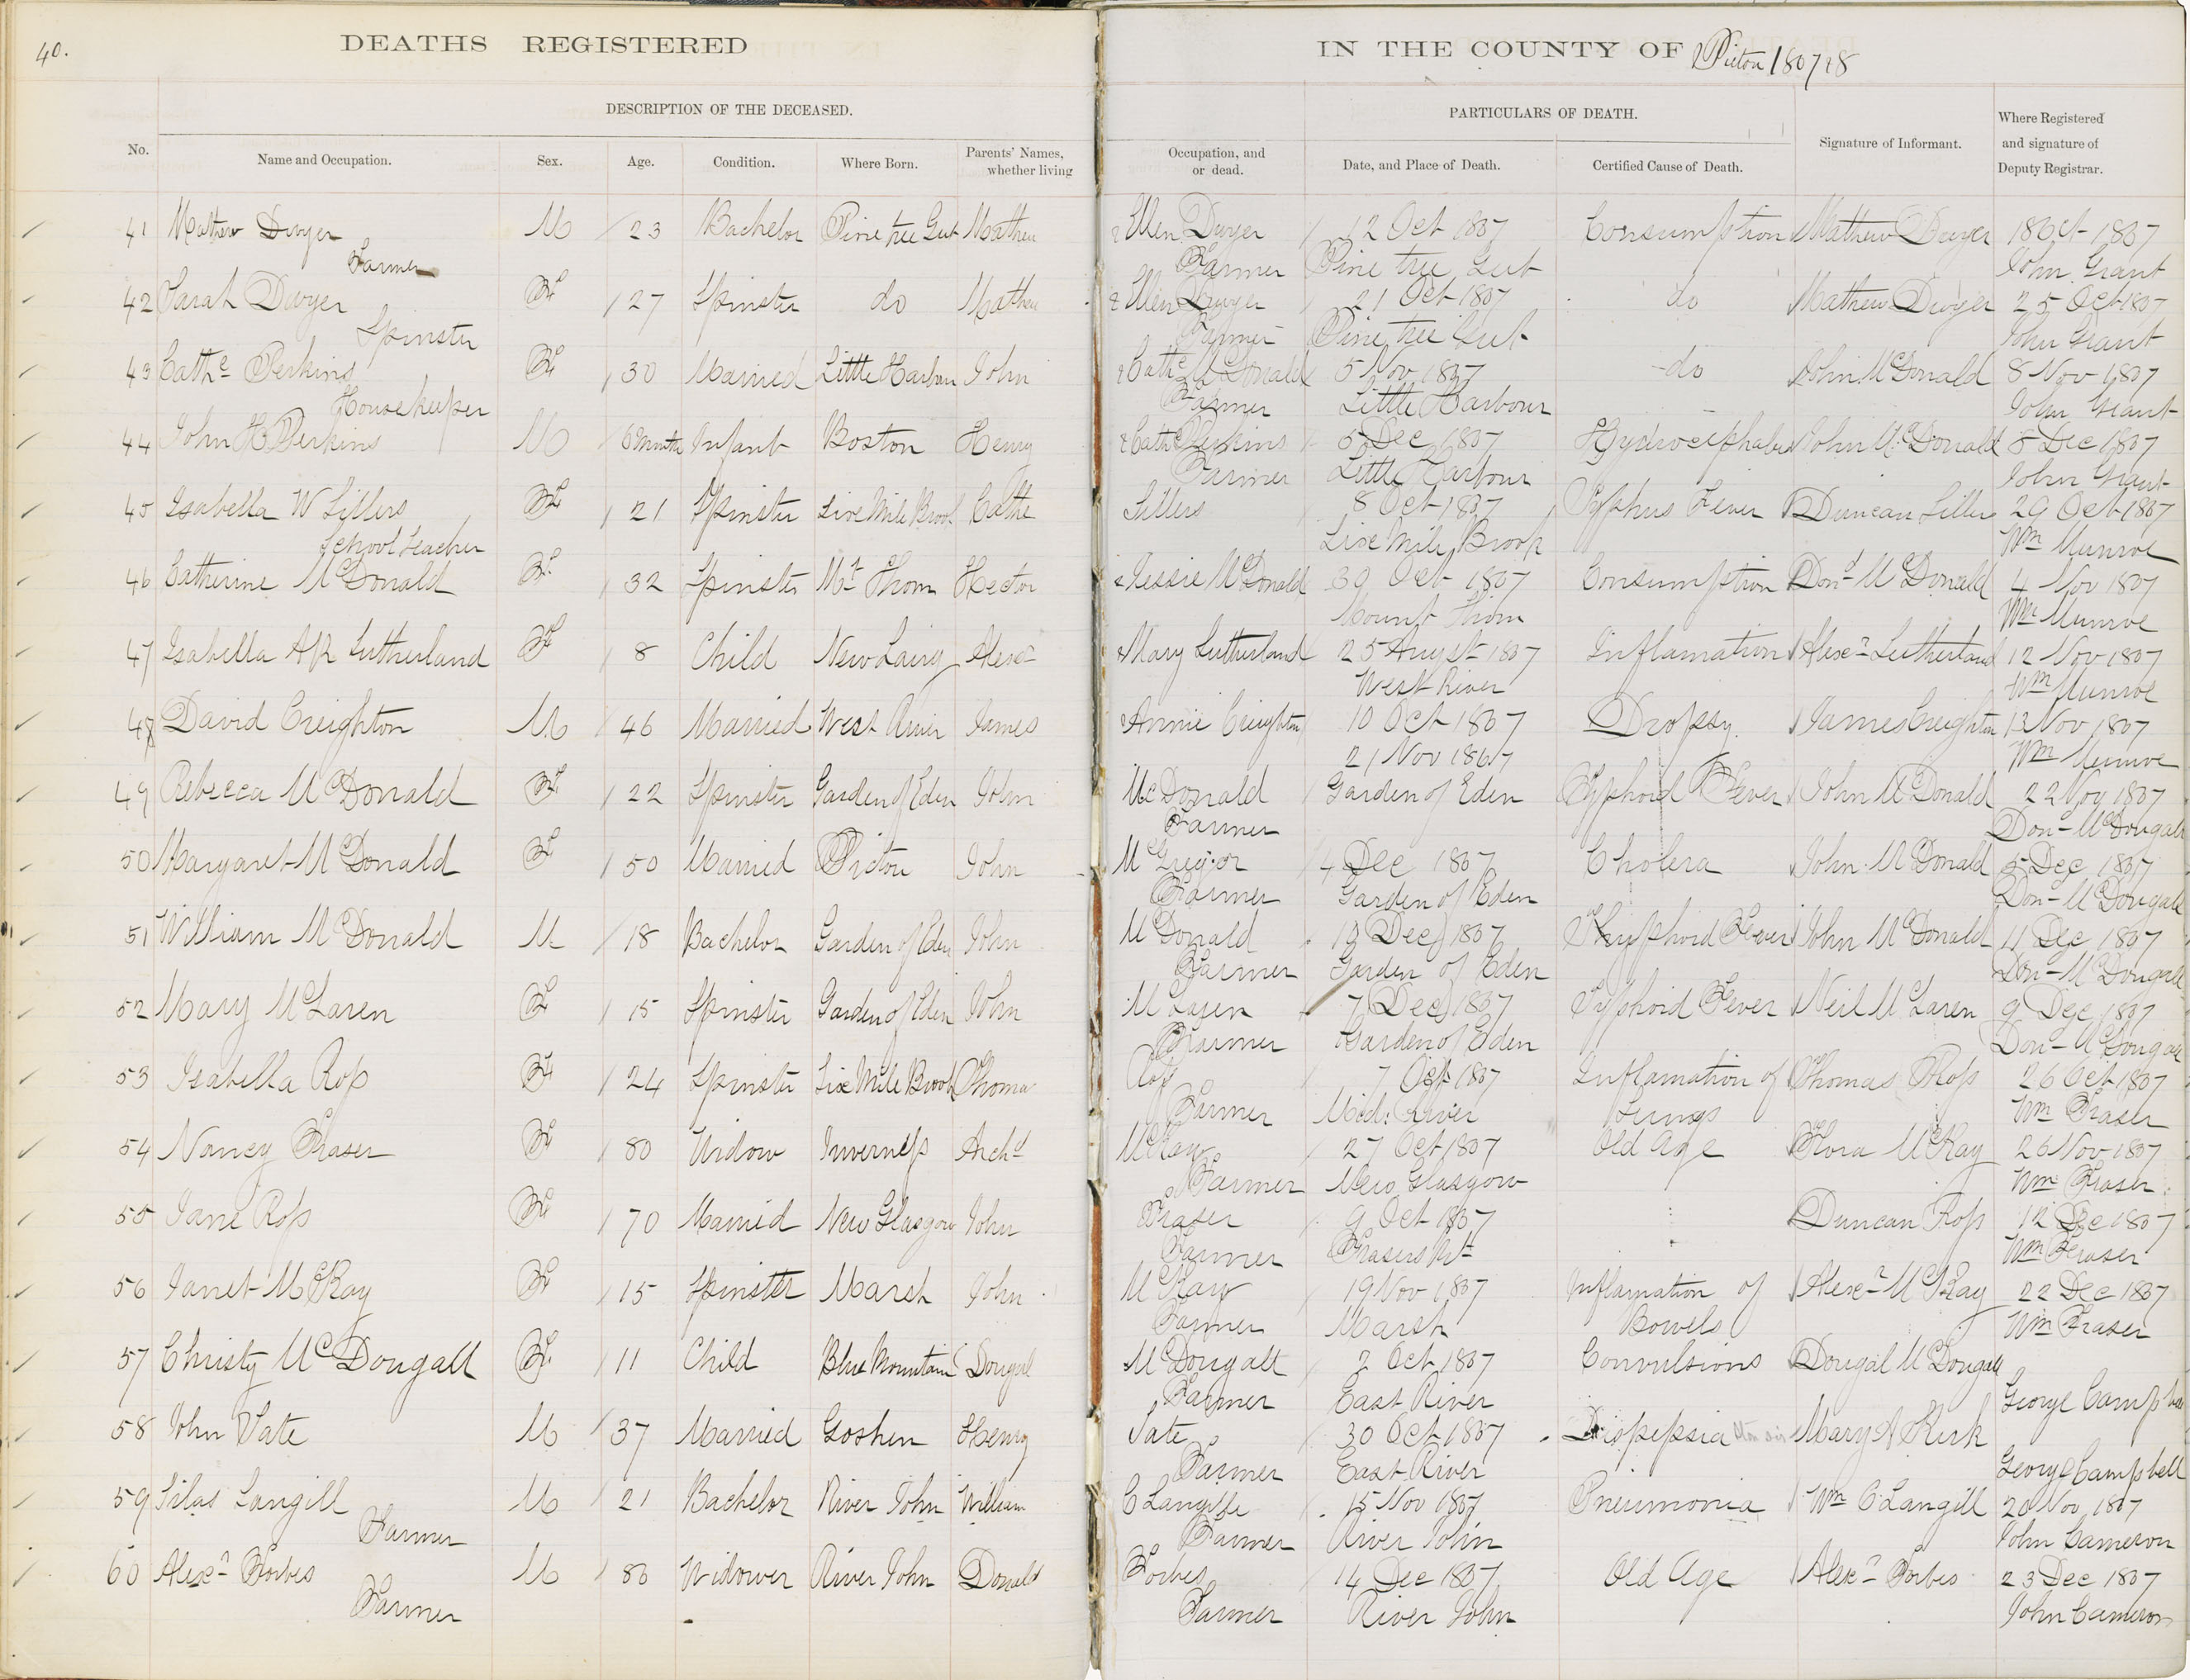 40.
DEATHS REGISTERED IN THE COUNTY OF Pictou 1867 & 8
DESCRIPTION OF THE DECEASED. PARTICULARS OF DEATH.
No. Name and Occupation. Sex. Age. Condition. Where Born. Parents' Names, whether living Occupation, and or dead. Date, and Place of Death. Certified Cause of Death. Signature of Informant. Where Registered and signature of Deputy Registrar.
41 Mathew Dwyer M 23 Bachelor Pine tree Gut Mathew & Ellen Dwyer 12 Oct 1867 Consumption Mathew Dwyer 18 Oct 1867
Farmer Farmer Pine tree Gut John Grant
42 Sarah Dwyer F 27 Spinster do Mathew & Ellen Dwyer 21 Oct 1867 do Mathew Dwyer 25 Oct 1867
Spinster Farmer Pine tree Gut John Grant
43 Cathe Perkins F 30 Married Little Harbour John & Cathe McDonald 5 Nov 1867 do John McDonald 8 Nov 1867
Housekeeper Farmer Little Harbour John Grant
44 John H Perkins M 6 Months Infant Boston Henry & Cathe Perkins 5 Dec 1867 Hydrocephalus John McDonald 8 Dec 1867
Farmer Little Harbour John Grant
45 Isabella W Sillers F 21 Spinster Six Mile Brook Cathe Sillers 8 Oct 1867 Typhus Fever Duncan Sillers 29 Oct 1867
School Teacher Six Mile Brook Wm Munroe
46 Catherine McDonald F 32 Spinster Mt Thom Hector & Jessie McDonald 30 Oct 1867 Consumption Dond McDonald 4 Nov 1867
Mount Thom Wm Munroe
47 Isabella A R Sutherland F 8 Child New Lairg Alexr & Mary Sutherland 25 August 1867 Inflamation Alexr Sutherland 12 Nov 1867
West River Wm Munroe
48 David Creighton M 46 Married West River James & Annie Creighton 10 Oct 1867 Dropsy. James Creighton 13 Nov 1867
21 Nov 1867 Wm Munroe
49 Rebecca McDonald F 22 Spinster Garden of Eden John McDonald Garden of Eden Typhoid Fever John McDonald 22 Nov 1867
Farmer Don- McDougall
50 Margaret McDonald F 50 Married Pictou John McGregor 4 Dec 1867 Cholera John McDonald 5 Dec 1867
Farmer Garden of Eden Don- McDougall
51 William McDonald M 18 Bachelor Garden of Eden John McDonald Dec 1867 Thyphoid Fever John McDonald 11 Dec 1867
Farmer Garden of Eden Don- McDougall
52 Mary McLaren F 15 Spinster Garden of Eden John McLaren 7 Dec 1867 Typhoid Fever Neil McLaren 9 Dec 1867
Farmer Garden of Eden Don- McDougall
53 Isabella Ross F 24 Spinster Six Mile Brook Thomas Ross 7 Oct 1867 Inflamation of Thomas Ross 26 Oct 1867
Farmer Mid. River Lungs Wm Fraser
54 Nancy Fraser F 80 Widow Inverness Archd McKay 27 Oct 1867 Old Age Flora McKay 26 Nov 1867
Farmer New Glasgow Wm Fraser
55 Jane Ross F 70 Married New Glasgow John Fraser 9 Oct 1867 Duncan Ross 12 Dec 1867
Farmer Frasers Mt Wm Fraser
56 Janet McKay F 15 Spinster Marsh John McKay 19 Nov 1867 Inflamation of Alexr McKay 22 Dec 1867
Farmer Marsh Bowels Wm Fraser
57 Christy McDougall F 11 Child Blue Mountain Dougal McDougall 2 Oct 1867 Convulsions Dougal McDougall
Farmer East River George Campbell
58 John Tate M 37 Married Goshen Henry Tate 30 Oct 1867 Dispepsia Mary A Kirk
Farmer East River George Campbell
59 Silas Langill M 21 Bachelor River John William C Langille 15 Nov 1867 Pneumonia Wm C Langill 20 Nov 1867
Farmer Farmer River John John Cameron
60 Alexr Forbes M 80 Widower River John Donald Forbes 14 Dec 1867 Old Age Alexr Forbes 23 Dec 1867
Farmer Farmer River John John Cameron